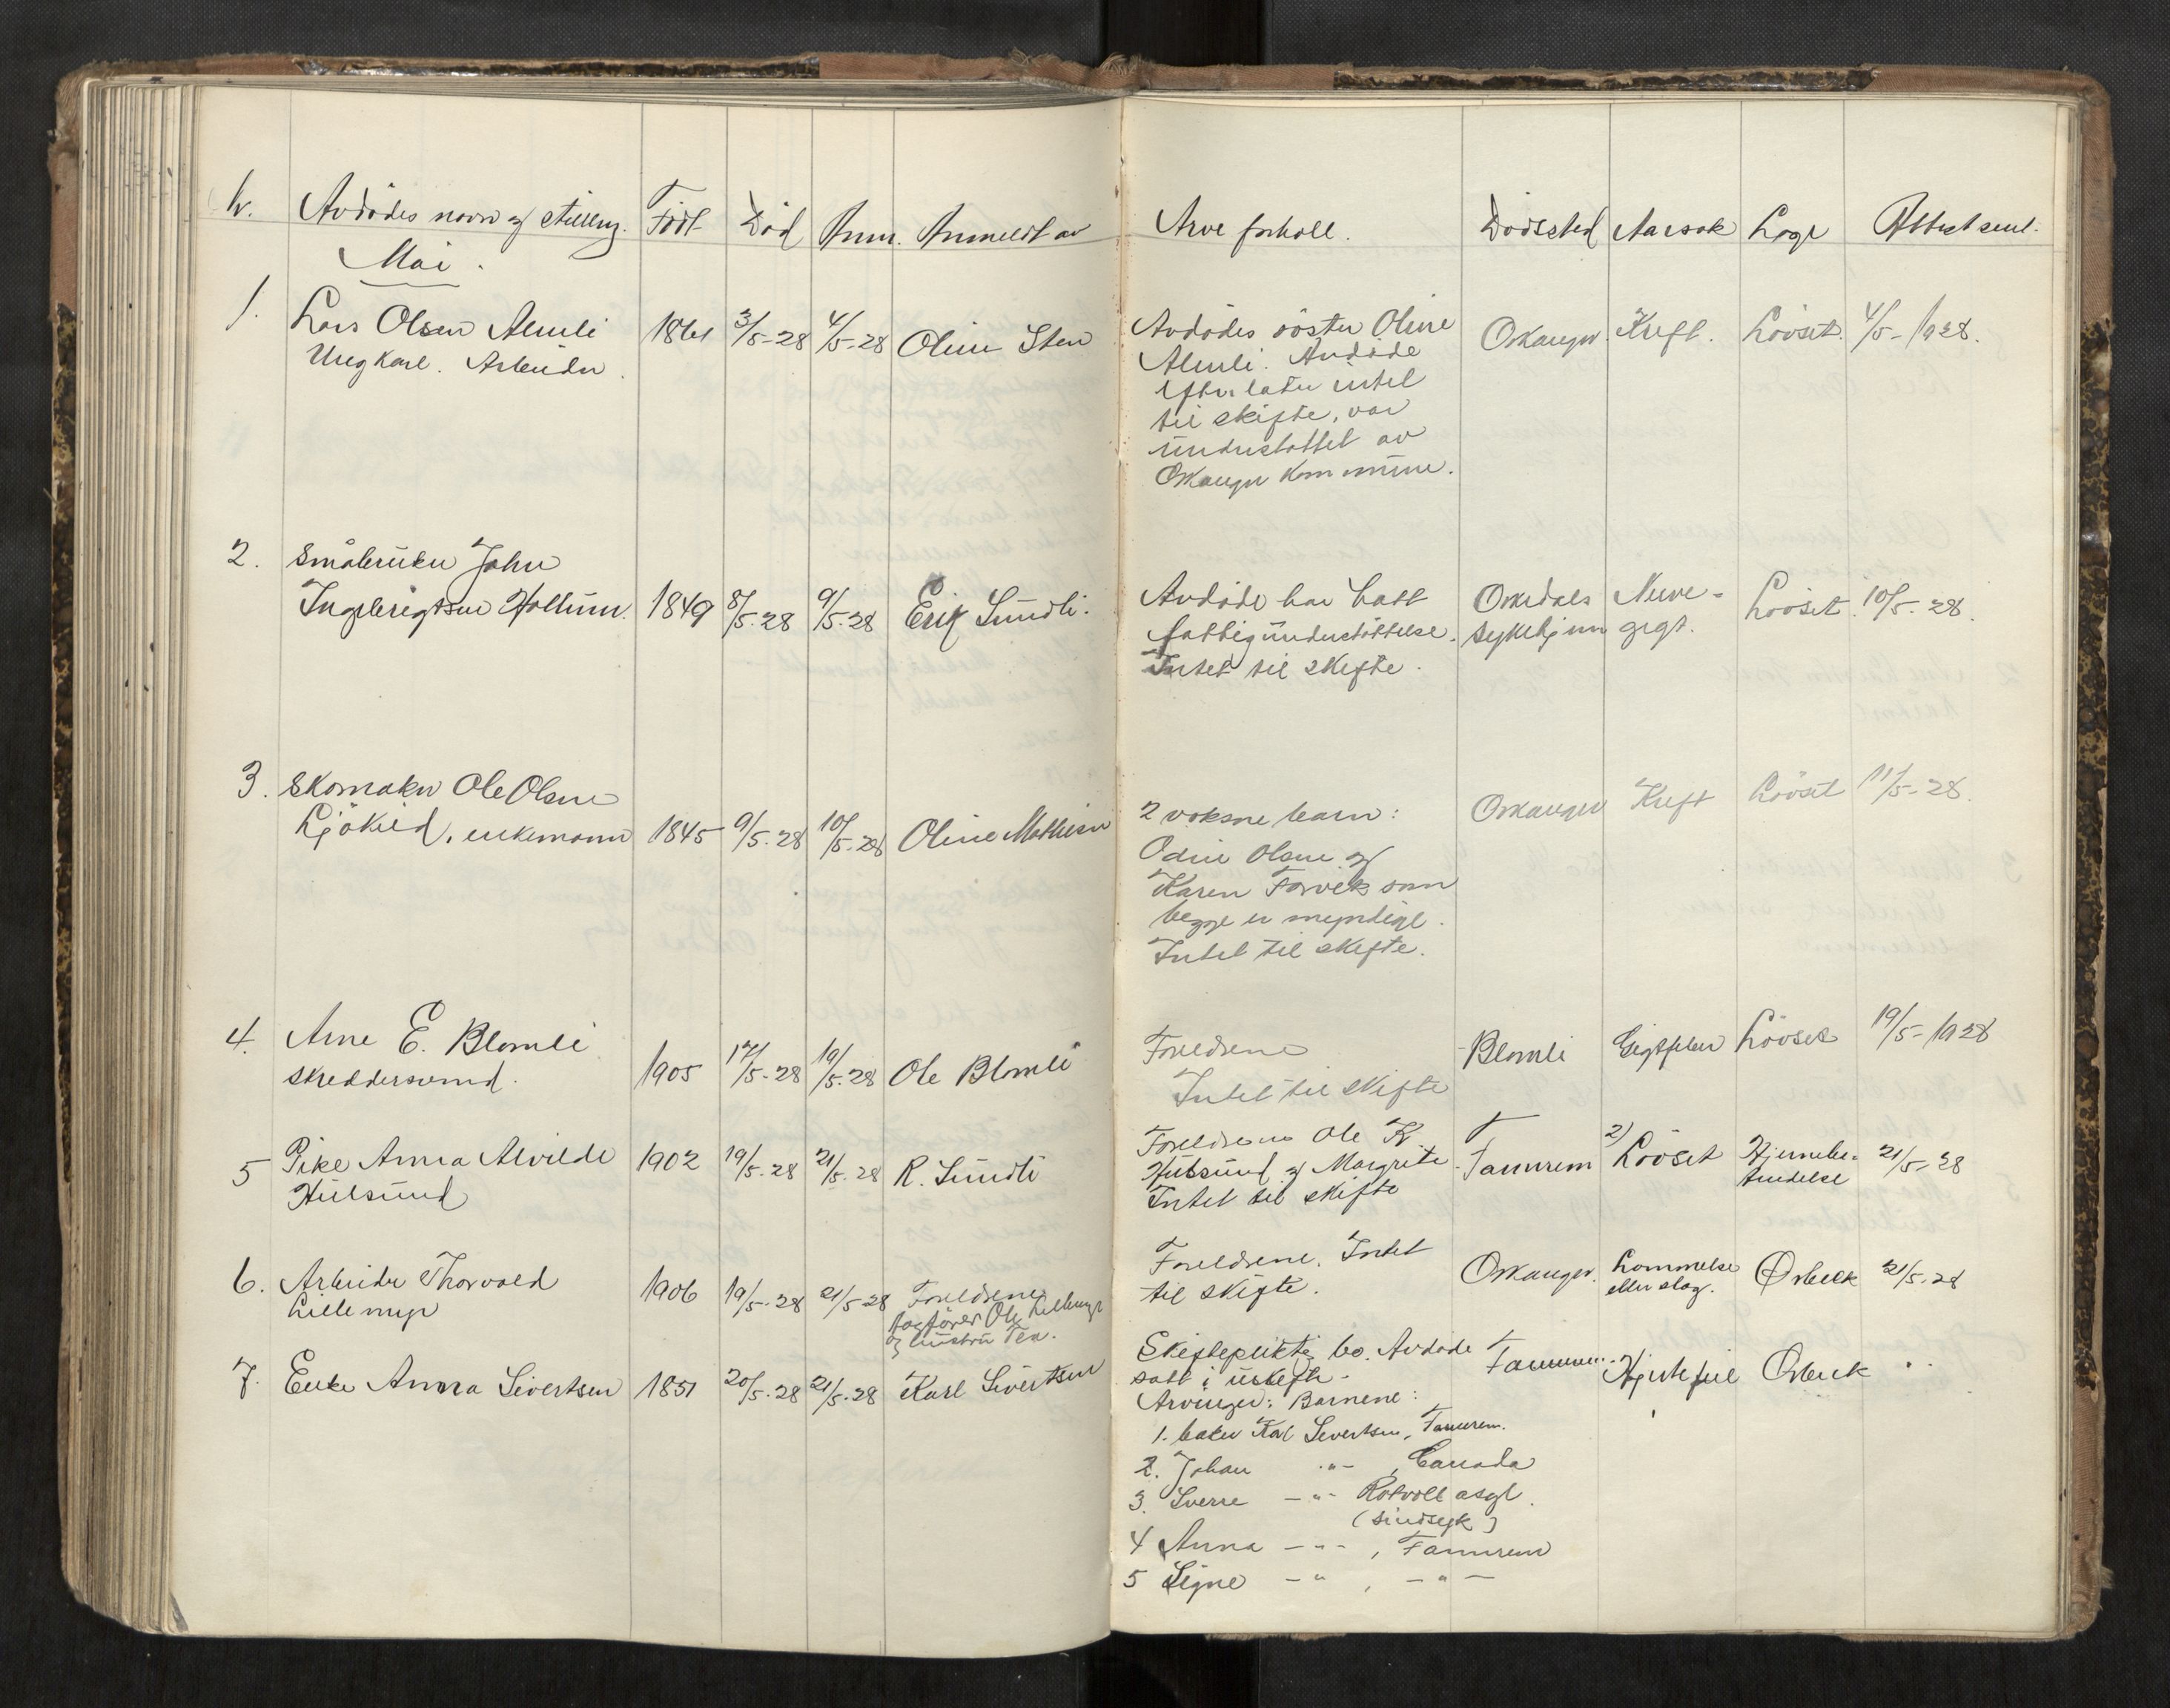 Nr. Avdødes navn og stilling. Født Død Anm. Anmeldt av Arveforhold. Dødssted Aarsak Læge Attest sendt.
Mai.
1. Lars Olsen Almli 1861 3/5-28 4/5-28 Oline Sten Avdødes søster Oline Orkanger. Kreft. Lööset. 4/5-1928.
Ungkarl. Arbeider. Almli. Avdøde
efterlater intet
til skifte, var
understøttet av
Orkanger kommune.
2. Småbruker John
Ingebrigtsen Hollum. 1849 8/5-28 9/5-28 Erik Sundli. Avdøde har hatt Orkdals Nerve- Lööset 10/5-28.
fattigunderstöttelse. sykehjem gigt.
Intet til skifte.
3. Skomaker Ole Olsen
Ljökild, enkemann 1845 9/5-28 10/5-28 Oline Mathisen 2 voksne barn: Orkanger Kreft Lööset 11/5-28.
Odin Olsen og
Karen Forvik som
begge er myndige.
Intet til skifte.
4. Arne E. Blomli
skreddersvend. 1905 17/5-28 19/5-28 Ole Blomli Foreldrene Blomli Gigtfeber Lööset 19/5-1928
Intet til skifte
5 Pike Anna Alvilde 1902 19/5-28 21/5-28 R. Sundli Foreldrene Ole K. Fannrem 2) Lööset Hjernebe- 21/5-28
Hulsund Hulsund og Margrete tendelse
Intet til skifte
6. Arbeider Thorvald 1906 19/5-28 21/5-28 Foreldrene Foreldrene. Intet Orkanger. Lammelse Ørbeck 21/5-28
Lillemyr Ole Lillemyr til skifte. eller slag.
og hustru Tea.
7. Enke Anna Sivertsen 1851 20/5-28 21/5-28 Karl Sivertsen Skiftepliktig bo. Avdøde Fannrem. Hjertefeil Ørbeck "
satt i uskifte.
Arvinger: Barnene:
1. baker Karl Sivertsen, Fannrem.
2. Johan -"- , Canada
3. Sverre -"- Rotvoll asyl.
(sindsyk)
4 Anna -"- , Fannrem
5 Signe -"- , -"-